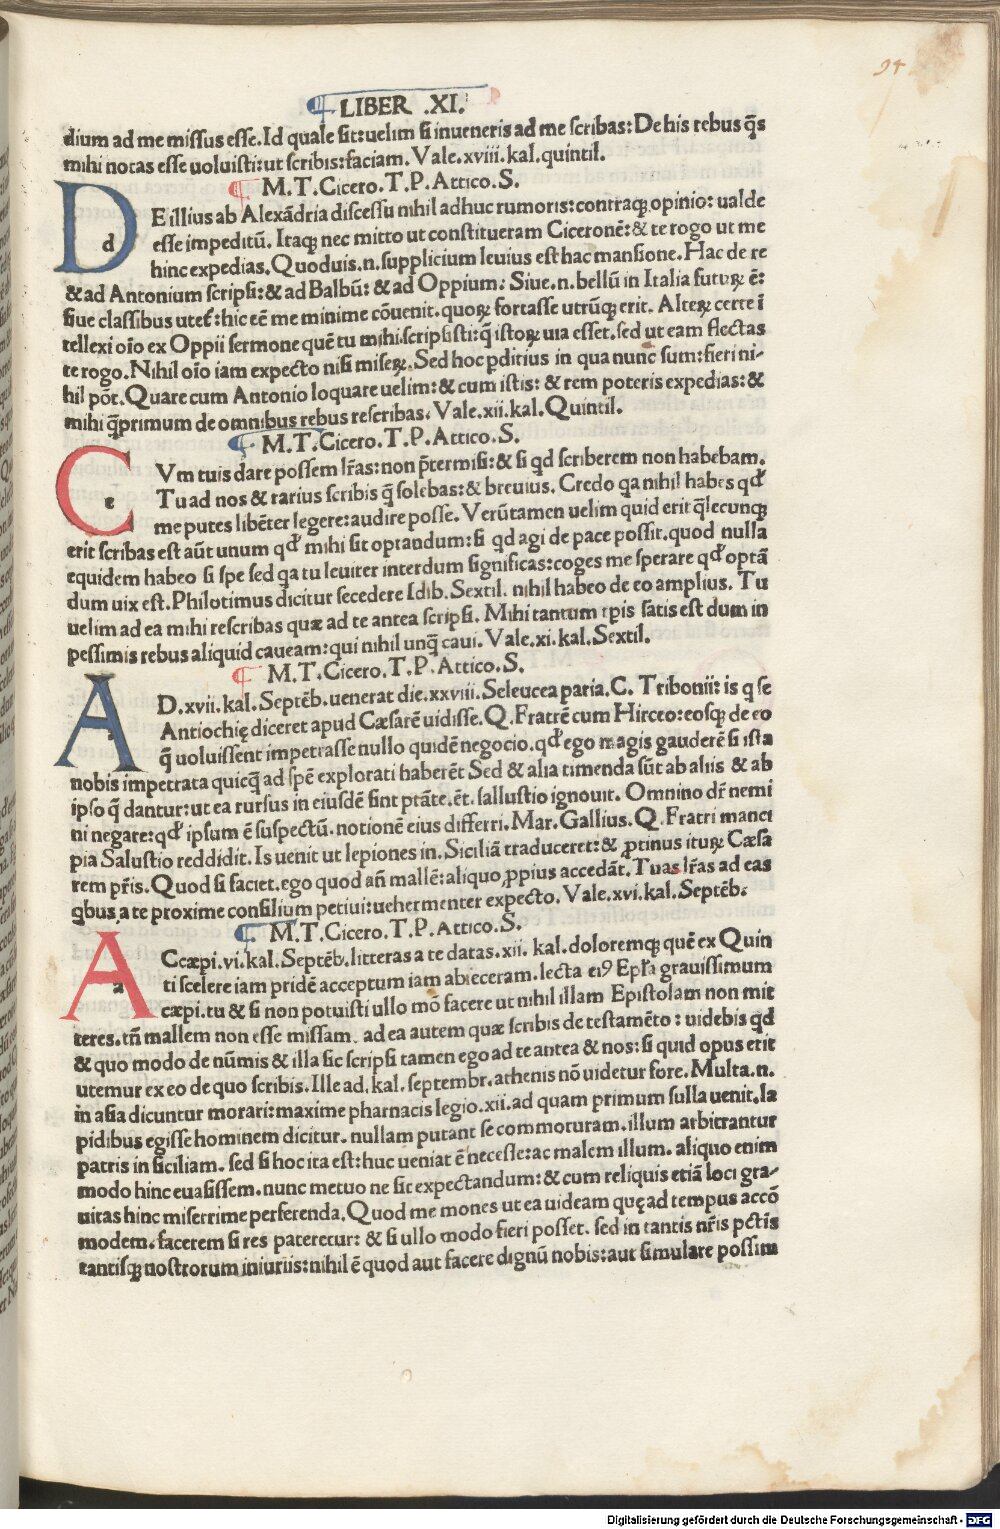 94
LIBER .XI.
dium ad me missus esse. Id quale sit: uelim si inueneris ad me scribas: De his rebus q̃s
mihi notas esse uoluisti: ut scribis: faciam. Vale. xviii. kal. quintil.
M. T. Cicero. T. P. Attico. S.
DE illius ab Alexãdria discessu nihil adhuc rumoris: contraqꝫ opinio: ualde
esse impeditũ. Itaqꝫ nec mitto ut constitueram Ciceronẽ: & te rogo ut me
hinc expedias. Quoduis .n. supplicium leuius est hac mansione. Hac de re
& ad Antonium scripsi: & ad Balbũ: & ad Oppium: Siue .n. bellũ in Italia futurꝝ ẽ:
siue classibus utet̃: hic eẽ me minime cõuenit. quorꝝ fortasse utrũqꝫ erit. Alterꝝ certe ĩ
tellexi oĩo ex Oppii sermone quẽ tu mihi scripsisti: q̃ istorꝝ uia esset. sed ut eam flectas
te rogo. Nihil oĩo iam expecto nisi miserꝝ. Sed hoc ꝑditius in qua nunc sum: fieri ni-
hil põt. Quare cum Antonio loquare uelim: & cum istis: & rem poteris expedias: &
mihi q̃primum de omnibus rebus rescribas. Vale. xii. kal. Quintil.
M. T. Cicero. T. P. Attico. S.
CVm tuis dare possem lr̃as: non p̃termisi: & si qd scriberem non habebam.
Tu ad nos & rarius scribis q̃ solebas: & breuius. Credo qa nihil habes qđ
me putes libẽter legere: audire posse. Verũtamen uelim quid erit q̃lecunqꝫ
erit scribas est aũt unum qđ mihi sit optandum: si qd agi de pace possit. quod nulla
equidem habeo si spe sed qa tu leuiter interdum significas: coges me sperare qđ optã
dum uix est. Philotimus dicitur secedere Idib. Sextil. nihil habeo de eo amplius. Tu
uelim ad ea mihi rescribas quæ ad te antea scripsi. Mihi tantum tpis satis est dum in
pessimis rebus aliquid caueam: qui nihil unq̃ caui. Vale. xi. kal. Sextil.
M. T. Cicero. T. P. Attico. S.
AD. xvii. kal. Septẽb. uenerat die. xxviii. Seleucea paria. C. Tribonii: is q se
Antiochię diceret apud Cæsarẽ uidisse. Q. Fratrẽ cum Hirceo: eosqꝫ de eo
q̃ uoluissent impetrasse nullo quidẽ negocio. qđ ego magis gauderẽ si ista
nobis impetrata quicq̃ ad spẽ explorati haberẽt Sed & alia timenda sũt ab aliis & ab
ipso q̃ dantur: ut ea rursus in eiusdẽ sint ptãte. ẽt. sallustio ignouit. Omnino dr̃ nemi
ni negare: qđ ipsum ẽ suspectũ. notionẽ eius differri. Mar. Gallius. Q. Fratri manci
pia Salustio reddidit. Is uenit ut legiones in. Siciliã traduceret: & ꝓtinus iturꝝ Cæsa
rem pr̃is. Quod si faciet. ego quod añ mallẽ: aliquo ꝓpius accedãt. Tuas lr̃as ad eas
qbus a te proxime consilium petiui: uehermenter expecto. Vale. xvi. kal. Septẽb.
M. T. Cicero. T. P. Attico. S.
ACcæpi. vi. kal. Septẽb. litteras a te datas. xii. kal. doloremqꝫ quẽ ex Quin
ti scelere iam pridẽ acceptum iam abieceram. lecta eiꝰ Epl̃a grauissimum
cæpi. tu & si non potuisti ullo mõ facere ut nihil illam Epistolam non mit
teres. tñ mallem non esse missam. ad ea autem quæ scribis de testamẽto: uidebis qd
& quo modo de nũmis & illa sic scripsi tamen ego ad te antea & nos: si quid opus erit
utemur ex eo de quo scribis. Ille ad. kal. septembr. athenis nõ uidetur fore. Multa .n.
in asia dicuntur morari: maxime pharnacis legio. xii. ad quam primum sulla uenit. la
pidibus egisse hominem dicitur. nullam putant se commoturam. illum arbitrantur
patris in siciliam. sed si hoc ita est: huc ueniat ẽ necesse: ac malem illum. aliquo enim
modo hinc euasissem. nunc metuo ne sit expectandum: & cum reliquis etiã loci gra-
uitas hinc miserrime perferenda. Quod me mones ut ea uideam quę ad tempus accõ
modem. facerem si res pateretur: & si ullo modo fieri posset. sed in tantis nr̃is pctĩs
tantisqꝫ nostrorum iniuriis: nihil ẽ quod aut facere dignũ nobis: aut simulare possim
Digitalisierung gefördert durch die Deutsche Forschungsgemeinschaft - DFG